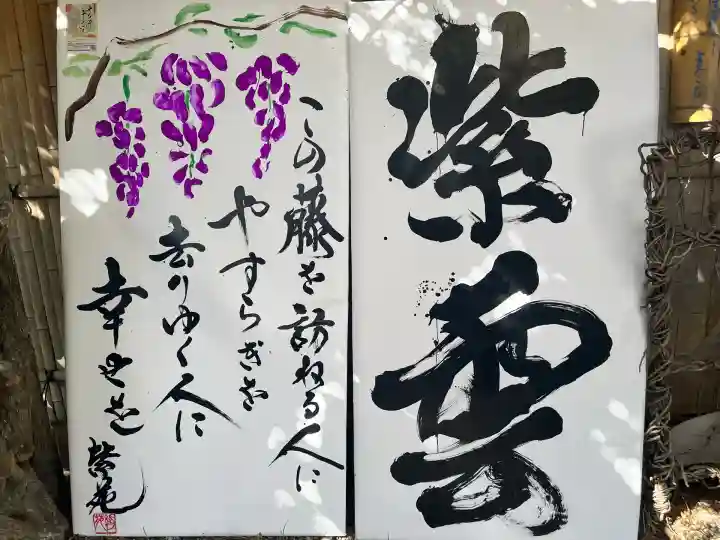 紫雲
この藤を訪ねる人に
やすらぎを
去りゆく人に
幸せを